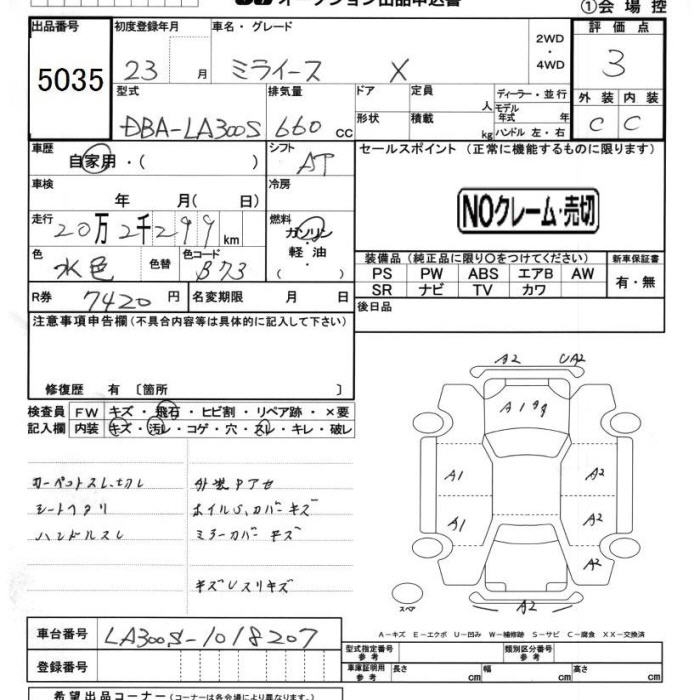 オークション出品申込書
①会場控
出品番号 初度登録年月 車名・グレード 2WD・4WD 評価点
5035 23 月 ミライース X 3
型式 排気量 ドア 定員 人 ディーラー・並行 外装 内装
DBA-LA300S 660 cc 形状 積載 kg モデル年式 年 ハンドル 左・右 C C
車歴 自家用・( ) シフト AT セールスポイント (正常に機能するものに限ります)
車検 年 月( 日) 冷房
NOクレーム・売切
走行 20万2千299km 燃料 ガソリン・軽油 ( )
色 水色 色替 色コード B73
装備品(純正品に限り○をつけてください) 新車保証書
PS PW ABS エアB AW 有・無
SR ナビ TV カワ
R券 7420円 名変期限 月 日 後日品
注意事項申告欄(不具合内容等は具体的に記入して下さい)
修復歴 有 〔箇所 〕
検査員 FW キズ・飛石・ヒビ割・リペア跡・×要
記入欄 内装 キズ・汚レ・コゲ・穴・スレ・キレ・破レ
カーペットスレ、切レ 外装 アセ
シートヘタリ ホイルS、カバーキズ
ハンドルスレ ミラーカバーキズ
キズUスリキズ
A2 UA2
A1
A1 A2
A1 A2
A2
スペア
A−キズ E−エクボ U−凹み W−補修跡 S−サビ C−腐食 XX−交換済
車台番号 LA300S-1018207
型式指定番号 類別区分番号
登録番号
車庫証明用参考 長さ cm 幅 cm 高さ cm
希望出品コーナー(コーナーは各会場により異なります。)